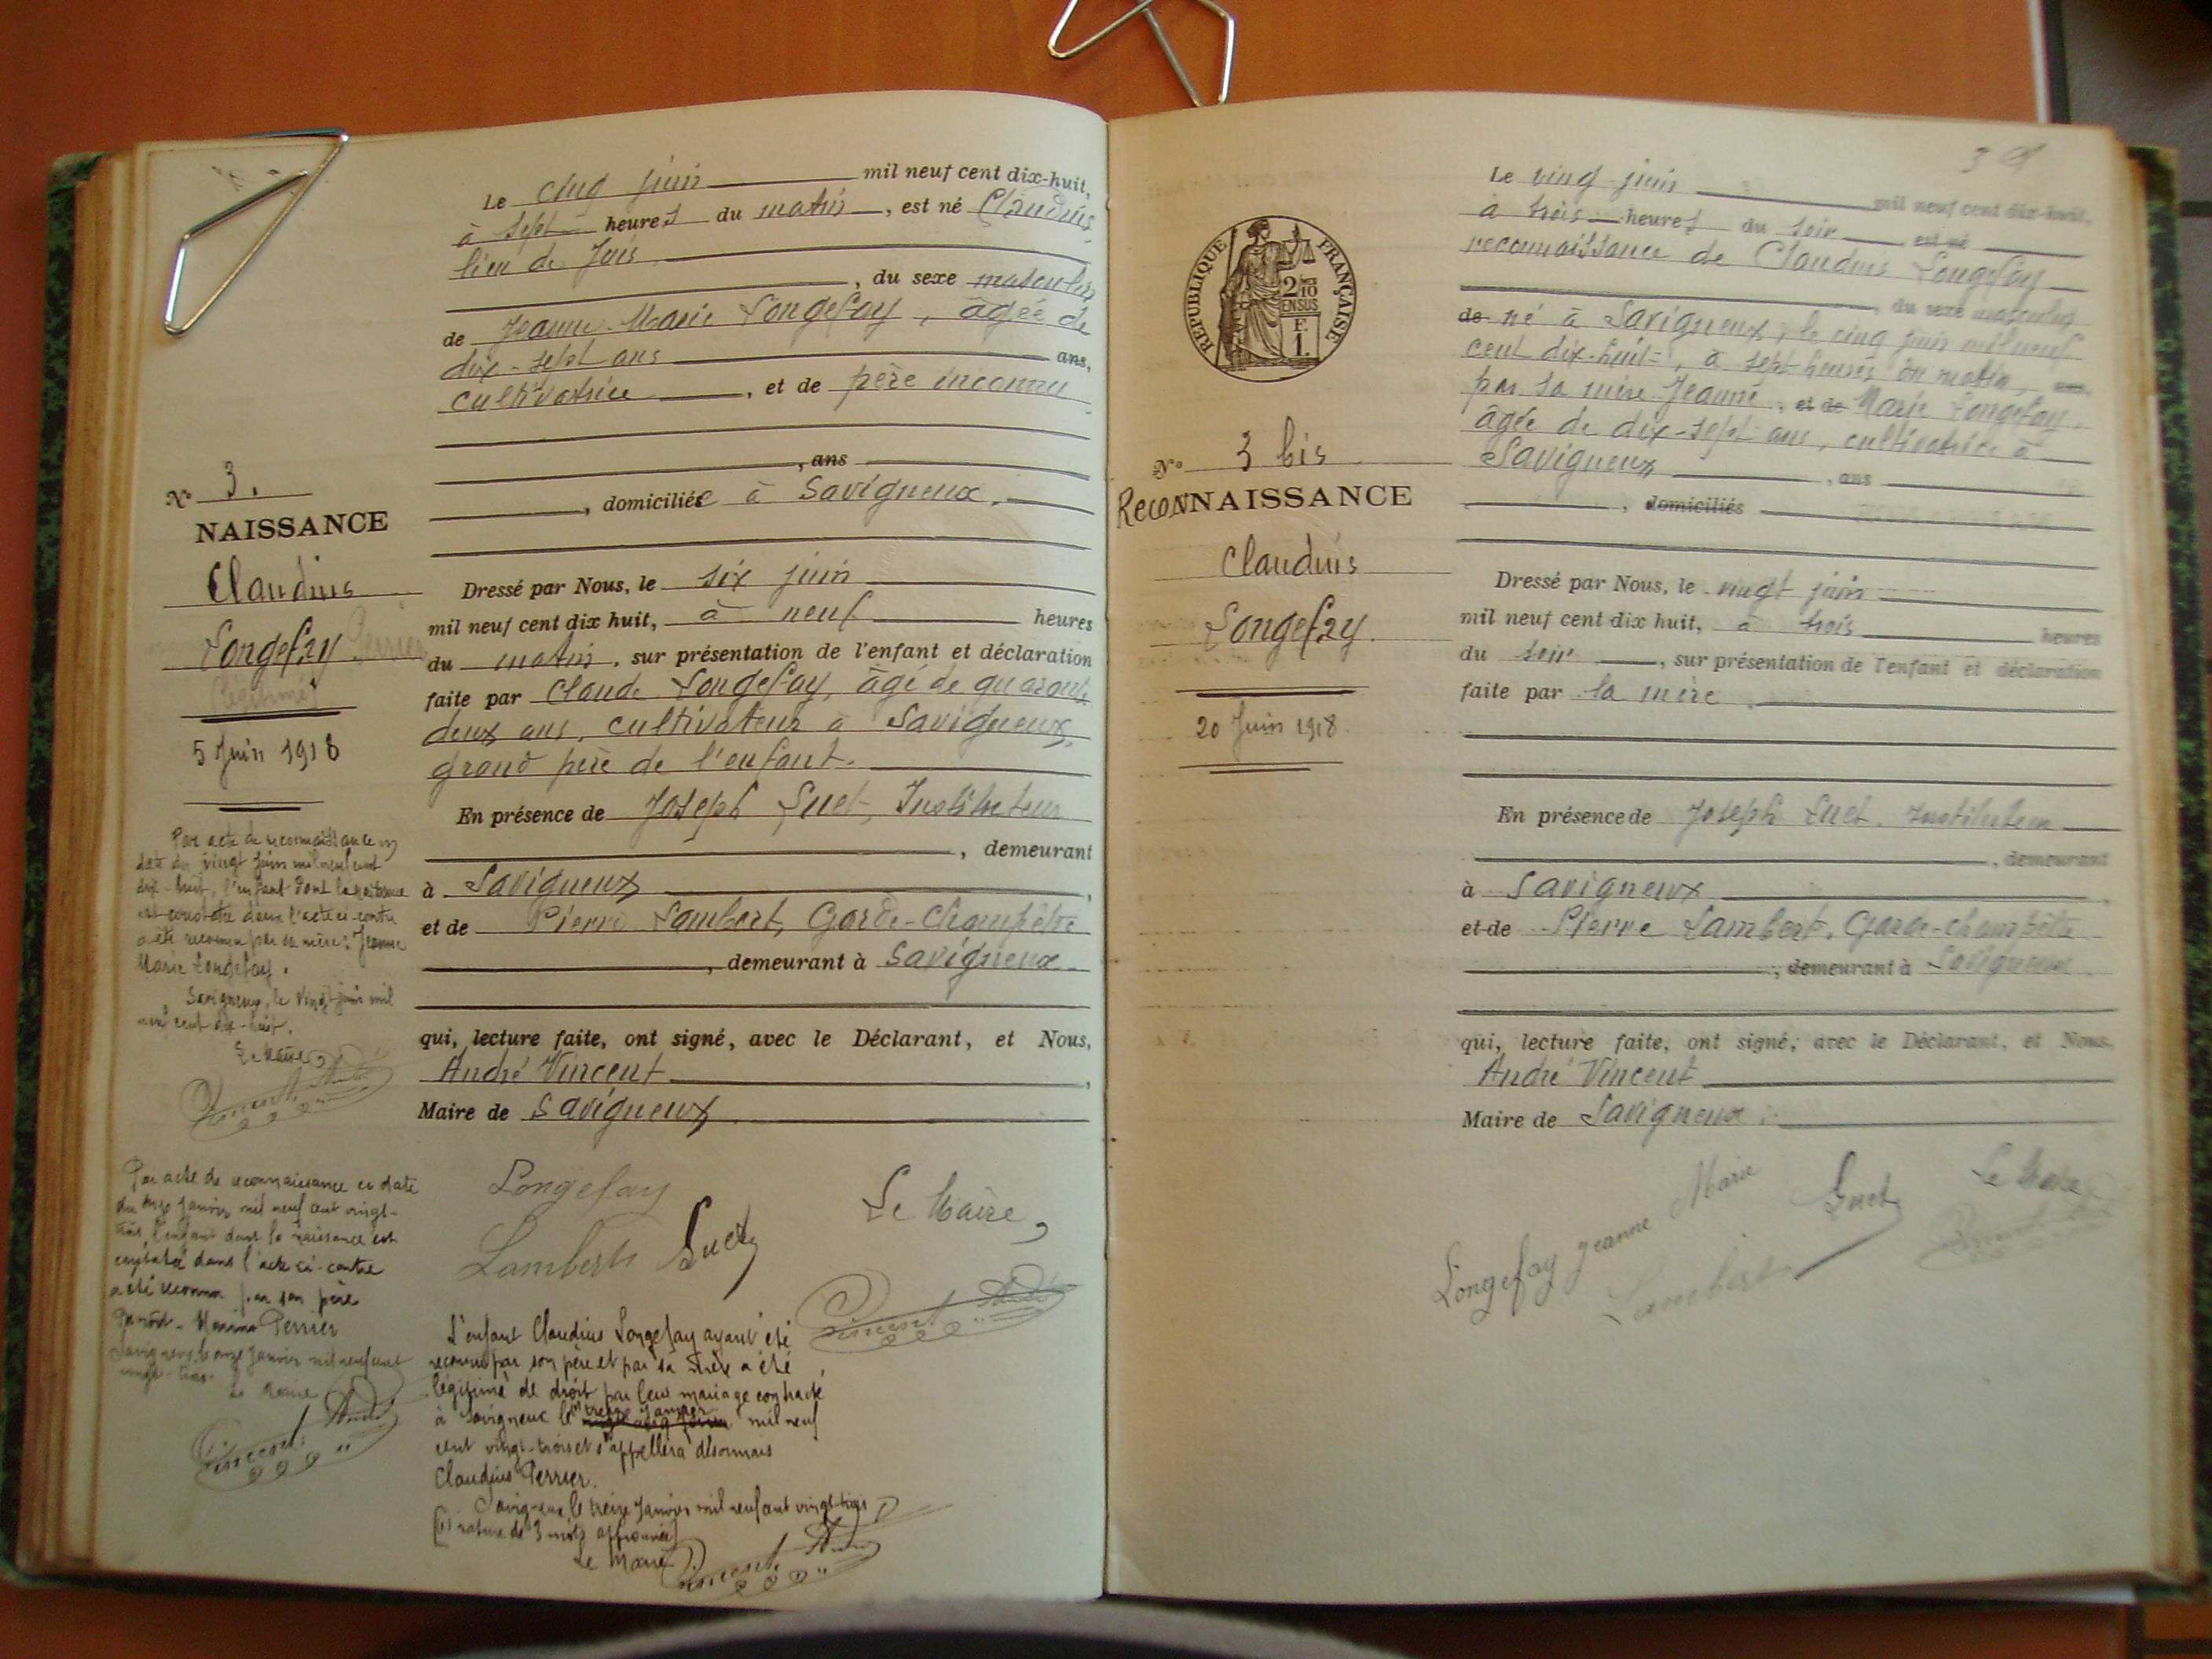 Le cinq juin mil neuf cent dix-huit,
à sept heures du matin, est né Claudius
lieu de Juis
, du sexe masculin
de Jeanne Marie Longefay, âgée de
dix-sept ans ans,
cultivatrice, et de père inconnu
, ans
, domiciliée à Savigneux.
N° 3.
NAISSANCE
Claudius
Longefay Perrier
légitimé
5 Juin 1918
Dressé par Nous, le six juin
mil neuf cent dix huit, à neuf heures
du matin, sur présentation de l'enfant et déclaration
faite par Claude Longefay, âgé de quarante
deux ans, cultivateur à Savigneux,
grand père de l'enfant.
En présence de Joseph Suet, Instituteur
, demeurant
à Savigneux,
et de Pierre Lambert, Garde-Champêtre
, demeurant à Savigneux
qui, lecture faite, ont signé, avec le Déclarant, et Nous,
André Vincent,
Maire de Savigneux
Longefay
Lambert Suet
Le Maire,
Vincent André
Par acte de reconnaissance en
date du vingt juin mil neuf cent
dix-huit, l'enfant dont la naissance
est constatée dans l'acte ci-contre
a été reconnu par sa mère : Jeanne
Marie Longefay.
Savigneux, le vingt juin mil
neuf cent dix-huit.
Le Maire,
Vincent André
Par acte de reconnaissance en date
du onze Janvier mil neuf cent vingt-
trois, l'enfant dont la naissance est
constatée dans l'acte ci-contre
a été reconnu par son père
Perrier
Savigneux, le onze Janvier mil neuf cent
vingt-trois.
Le Maire
Vincent André
L'enfant Claudius Longefay ayant été
reconnu par son père et par sa mère a été
légitimé de droit par leur mariage contracté
à Savigneux le (1) treize Janvier mil neuf
cent vingt-trois et s'appellera désormais
Claudius Perrier.
Savigneux le treize Janvier mil neuf cent vingt-trois
(1) rature de 3 mots approuvée
Le Maire
Vincent André
3
REPUBLIQUE FRANÇAISE
2/10 EN SUS
F.
1.
N° 3 bis
RECONNAISSANCE
Claudius
Longefay.
20 Juin 1918
Le vingt juin mil neuf cent dix-huit,
à trois heures du soir, est né
reconnaissance de Claudius Longefay
, du sexe masculin
de né à Savigneux, le cinq juin mil neuf
cent dix-huit, à sept heures du matin, ans,
par sa mère Jeanne, et de Marie Longefay,
âgée de dix-sept ans, cultivatrice à
Savigneux, ans
, domiciliés
Dressé par Nous, le vingt juin
mil neuf cent dix huit, à trois heures
du soir, sur présentation de l'enfant et déclaration
faite par la mère.
En présence de Joseph Suet, Instituteur
, demeurant
à Savigneux,
et de Pierre Lambert, Garde-champêtre
, demeurant à Savigneux
qui, lecture faite, ont signé, avec le Déclarant, et Nous,
André Vincent
Maire de Savigneux.
Longefay Jeanne Marie
Lambert
Suet
Le Maire,
Vincent André